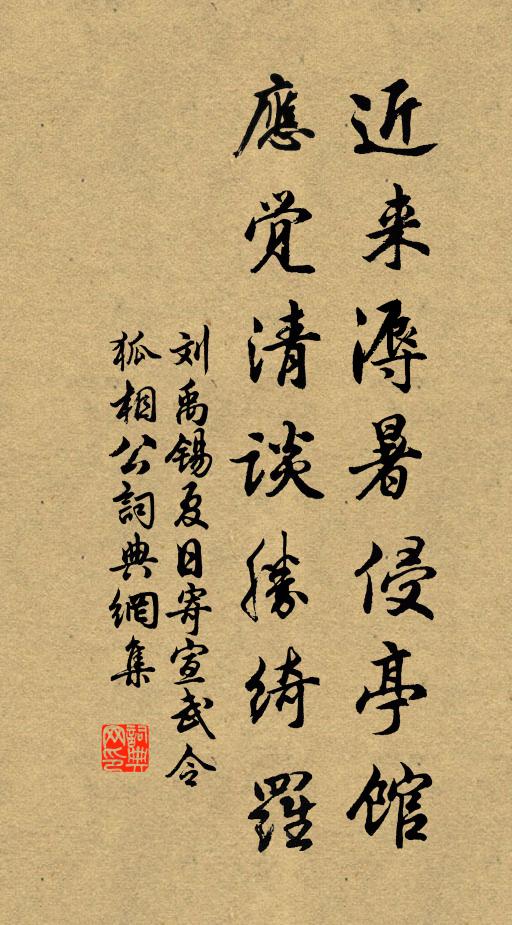 近来溽暑侵亭馆
應觉清談勝綺羅
刘禹锡夏日寄宣武令
狐相公詞典網集
詞典網印